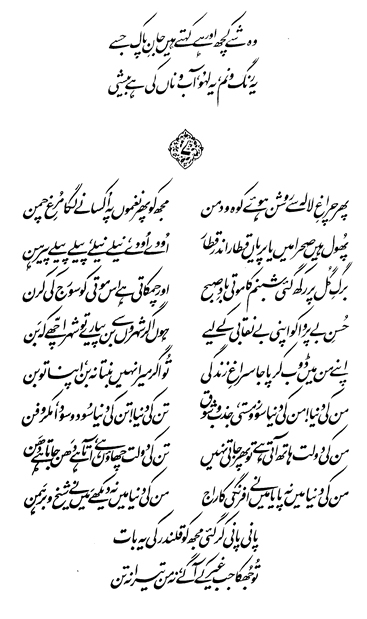 وہ شے کچھ اور ہے کہتے ہیں جانِ پاک جسے
یہ رنگ و نم، یہ لہو، آب و ناں کی ہے بیشی
۷
پھر چراغِ لالہ سے روشن ہوئے کوہ و دمن مجھ کو پھر نغموں پہ اُکسانے لگا مرغِ چمن
پھول ہیں صحرا میں یا پریاں قطار اندر قطار اُودے اُودے، نیلے نیلے، پیلے پیلے پیرہن
برگِ گل پر رکھ گئی شبنم کا موتی بادِ صبح اور چمکاتی ہے اس موتی کو سورج کی کرن
حسنِ بے پروا کو اپنی بے نقابی کے لیے ہوں اگر شہروں سے بن پیارے تو شہر اچھے کہ بن
اپنے من میں ڈوب کر پا جا سراغِ زندگی تُو اگر میرا نہیں بنتا نہ بن، اپنا تو بن
من کی دنیا! من کی دنیا سوز و مستی جذب و شوق تن کی دنیا! تن کی دنیا سود و سودا مکر و فن
من کی دولت ہاتھ آتی ہے تو پھر جاتی نہیں تن کی دولت چھاؤں ہے آتا ہے دھن جاتا ہے دھن
من کی دنیا میں نہ پایا میں نے افرنگی کا راج من کی دنیا میں نہ دیکھے میں نے شیخ و برہمن
پانی پانی کر گئی مجھ کو قلندر کی یہ بات
تُو جھکا جب غیر کے آگے نہ من تیرا نہ تن